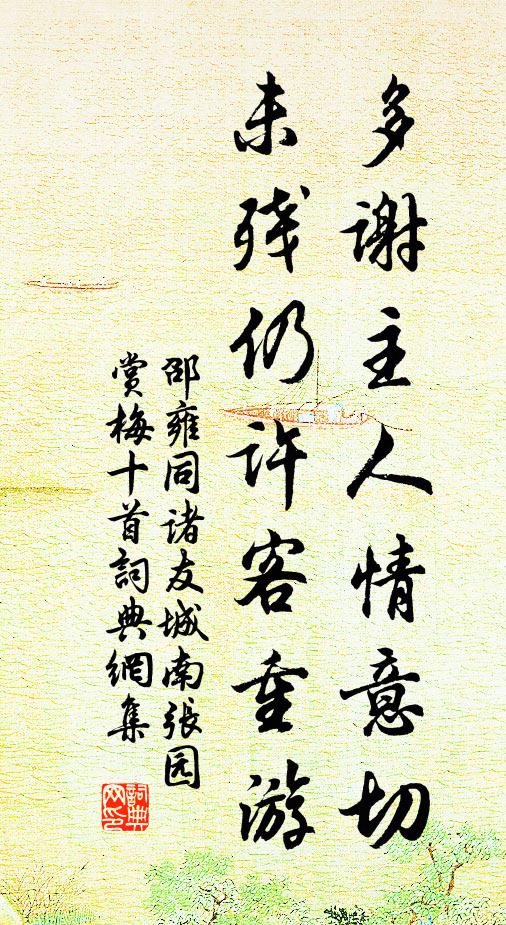 多谢主人情意切
未残仍许客重游
邵雍同诸友城南张园
赏梅十首詞典網集
詞典网印